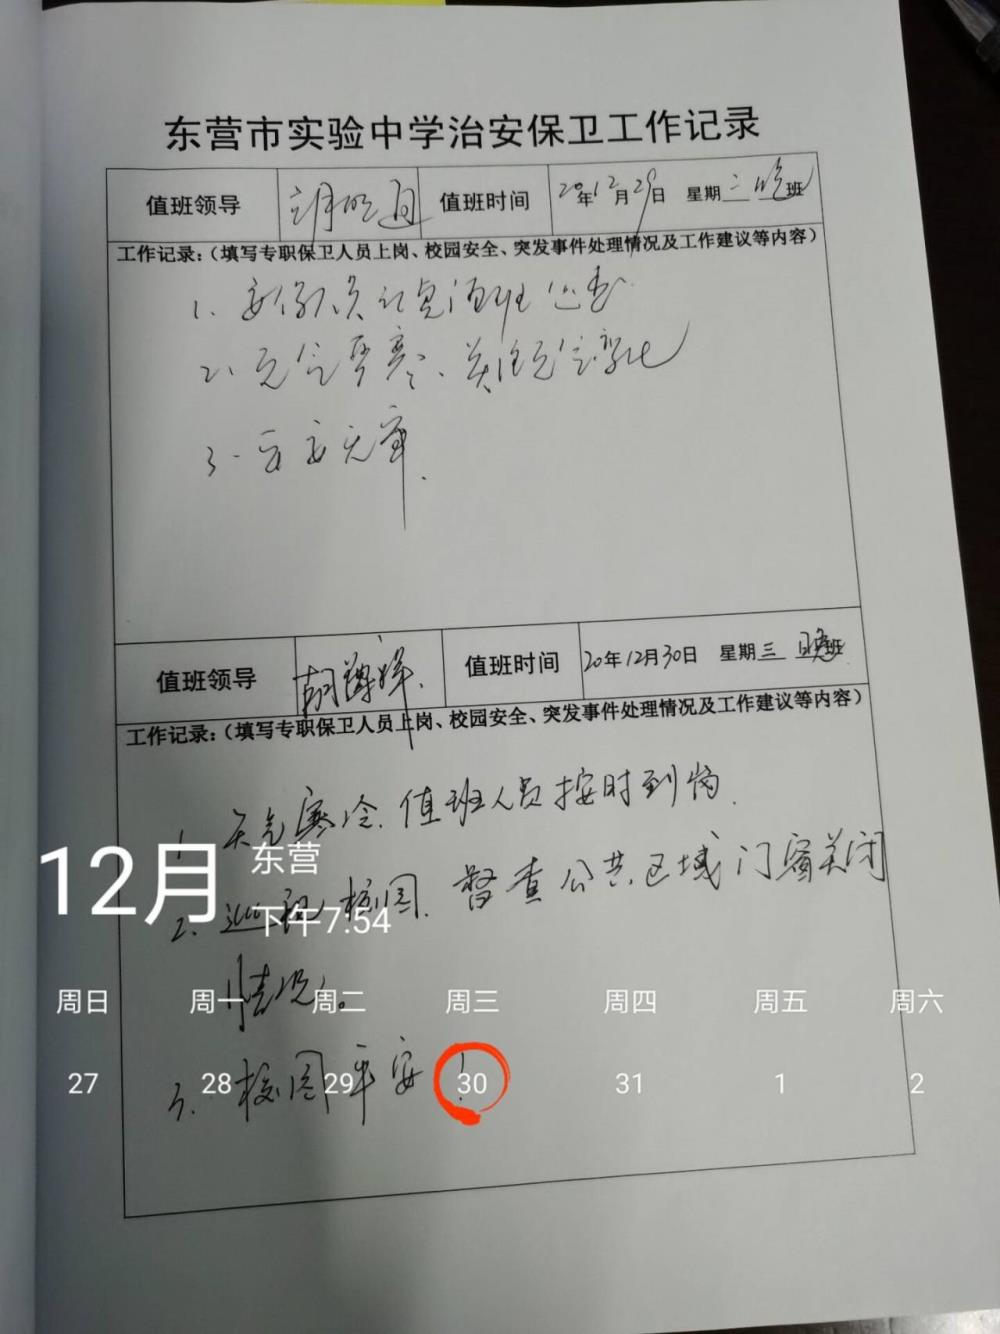 东营市实验中学治安保卫工作记录
值班领导 值班时间 20年12月29日 星期二 晚班
工作记录：（填写专职保卫人员上岗、校园安全、突发事件处理情况及工作建议等内容）
1、安保人员
2、天气严寒、关注天气变化
3、平安无事.
值班领导 值班时间 20年12月30日 星期三 晚班
工作记录：（填写专职保卫人员上岗、校园安全、突发事件处理情况及工作建议等内容）
1、天气寒冷,值班人员按时到岗.
2、巡视校园,督查公共区域门窗关闭
情况。
3、校园平安！
12月
东营
下午7:54
周日 周一 周二 周三 周四 周五 周六
27 28 29 30 31 1 2